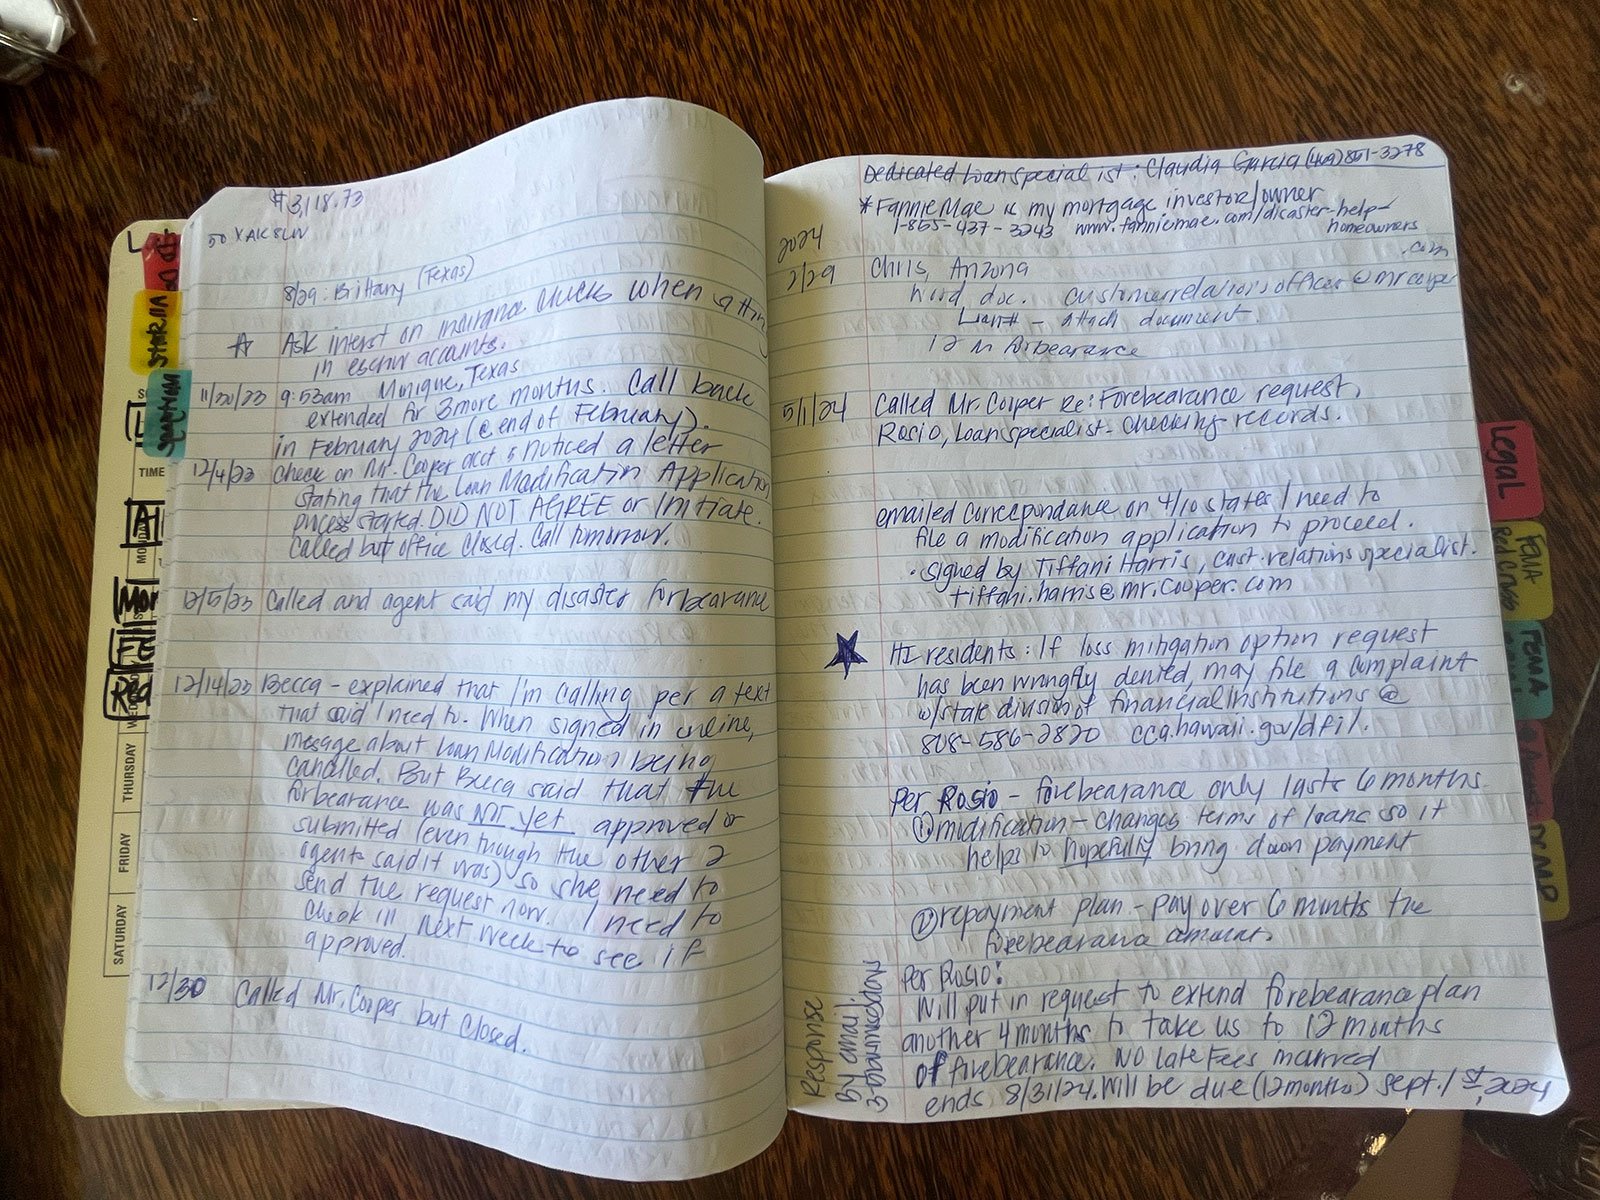 $3,118.73
8/29: Brittany (Texas)
Ask interst on insurance checks when
in escrow accounts.
11/20/23 9:53am Monique, Texas
extended for 3 more months. Call back
in February 2024 (@ end of February).
12/4/23 Check on Mr. Cooper acct & noticed a letter
stating that the Loan Modification Application
process started. DID NOT AGREE or Initiate.
Called but office closed. Call tomorrow.
12/5/23 Called and agent said my disaster forbearance
12/14/23 Becca - explained that I'm calling per a text
that said I need to. When signed in online,
message about Loan Modification being
cancelled. But Becca said that the
forbearance was NOT yet approved or
submitted (even though the other 2
agents said it was) so she need to
send the request now. I need to
check in next week to see if
approved.
12/30 Called Mr. Cooper but closed.
L
TIME
MONDAY
THURSDAY
FRIDAY
SATURDAY
Dedicated Loan specialist: Claudia Garcia (469) 851-3278
* Fannie Mae is my mortgage investor/owner
1-855-437-3243 www.fanniemae.com/disaster-help-
homeowners
.com
2024
2/29 Chris, Arizona
Word doc. customerrelationsofficer@mrcooper
Loan# - attach document
12 m forbearance
5/1/24 Called Mr. Cooper Re: Forebearance request,
Rosio, Loan specialist - checking records.
emailed correspondance on 4/10 states I need to
file a modification application to proceed.
· signed by Tiffani Harris, cust. relations specialist.
tiffani.harris@mr.cooper.com
HI residents: If loss mitigation option request
has been wrongfly denied, may file a complaint
w/state division of financial Institutions @
808-586-2820 cca.hawaii.gov/dfi/.
Per Rosio - forebearance only lasts 6 months.
① modification - changes terms of loans so it
helps to hopefully bring down payment
② repayment plan - pay over 6 months the
forebearance amount.
Per Rosio:
Will put in request to extend forebearance plan
another 4 months to take us to 12 months
of forebearance. No late Fees incurred
ends 8/31/24. Will be due (12 months) Sept. 1st, 2024
Response
by email:
3-5 business days
Legal
FEMA
Red Cross
FEMA